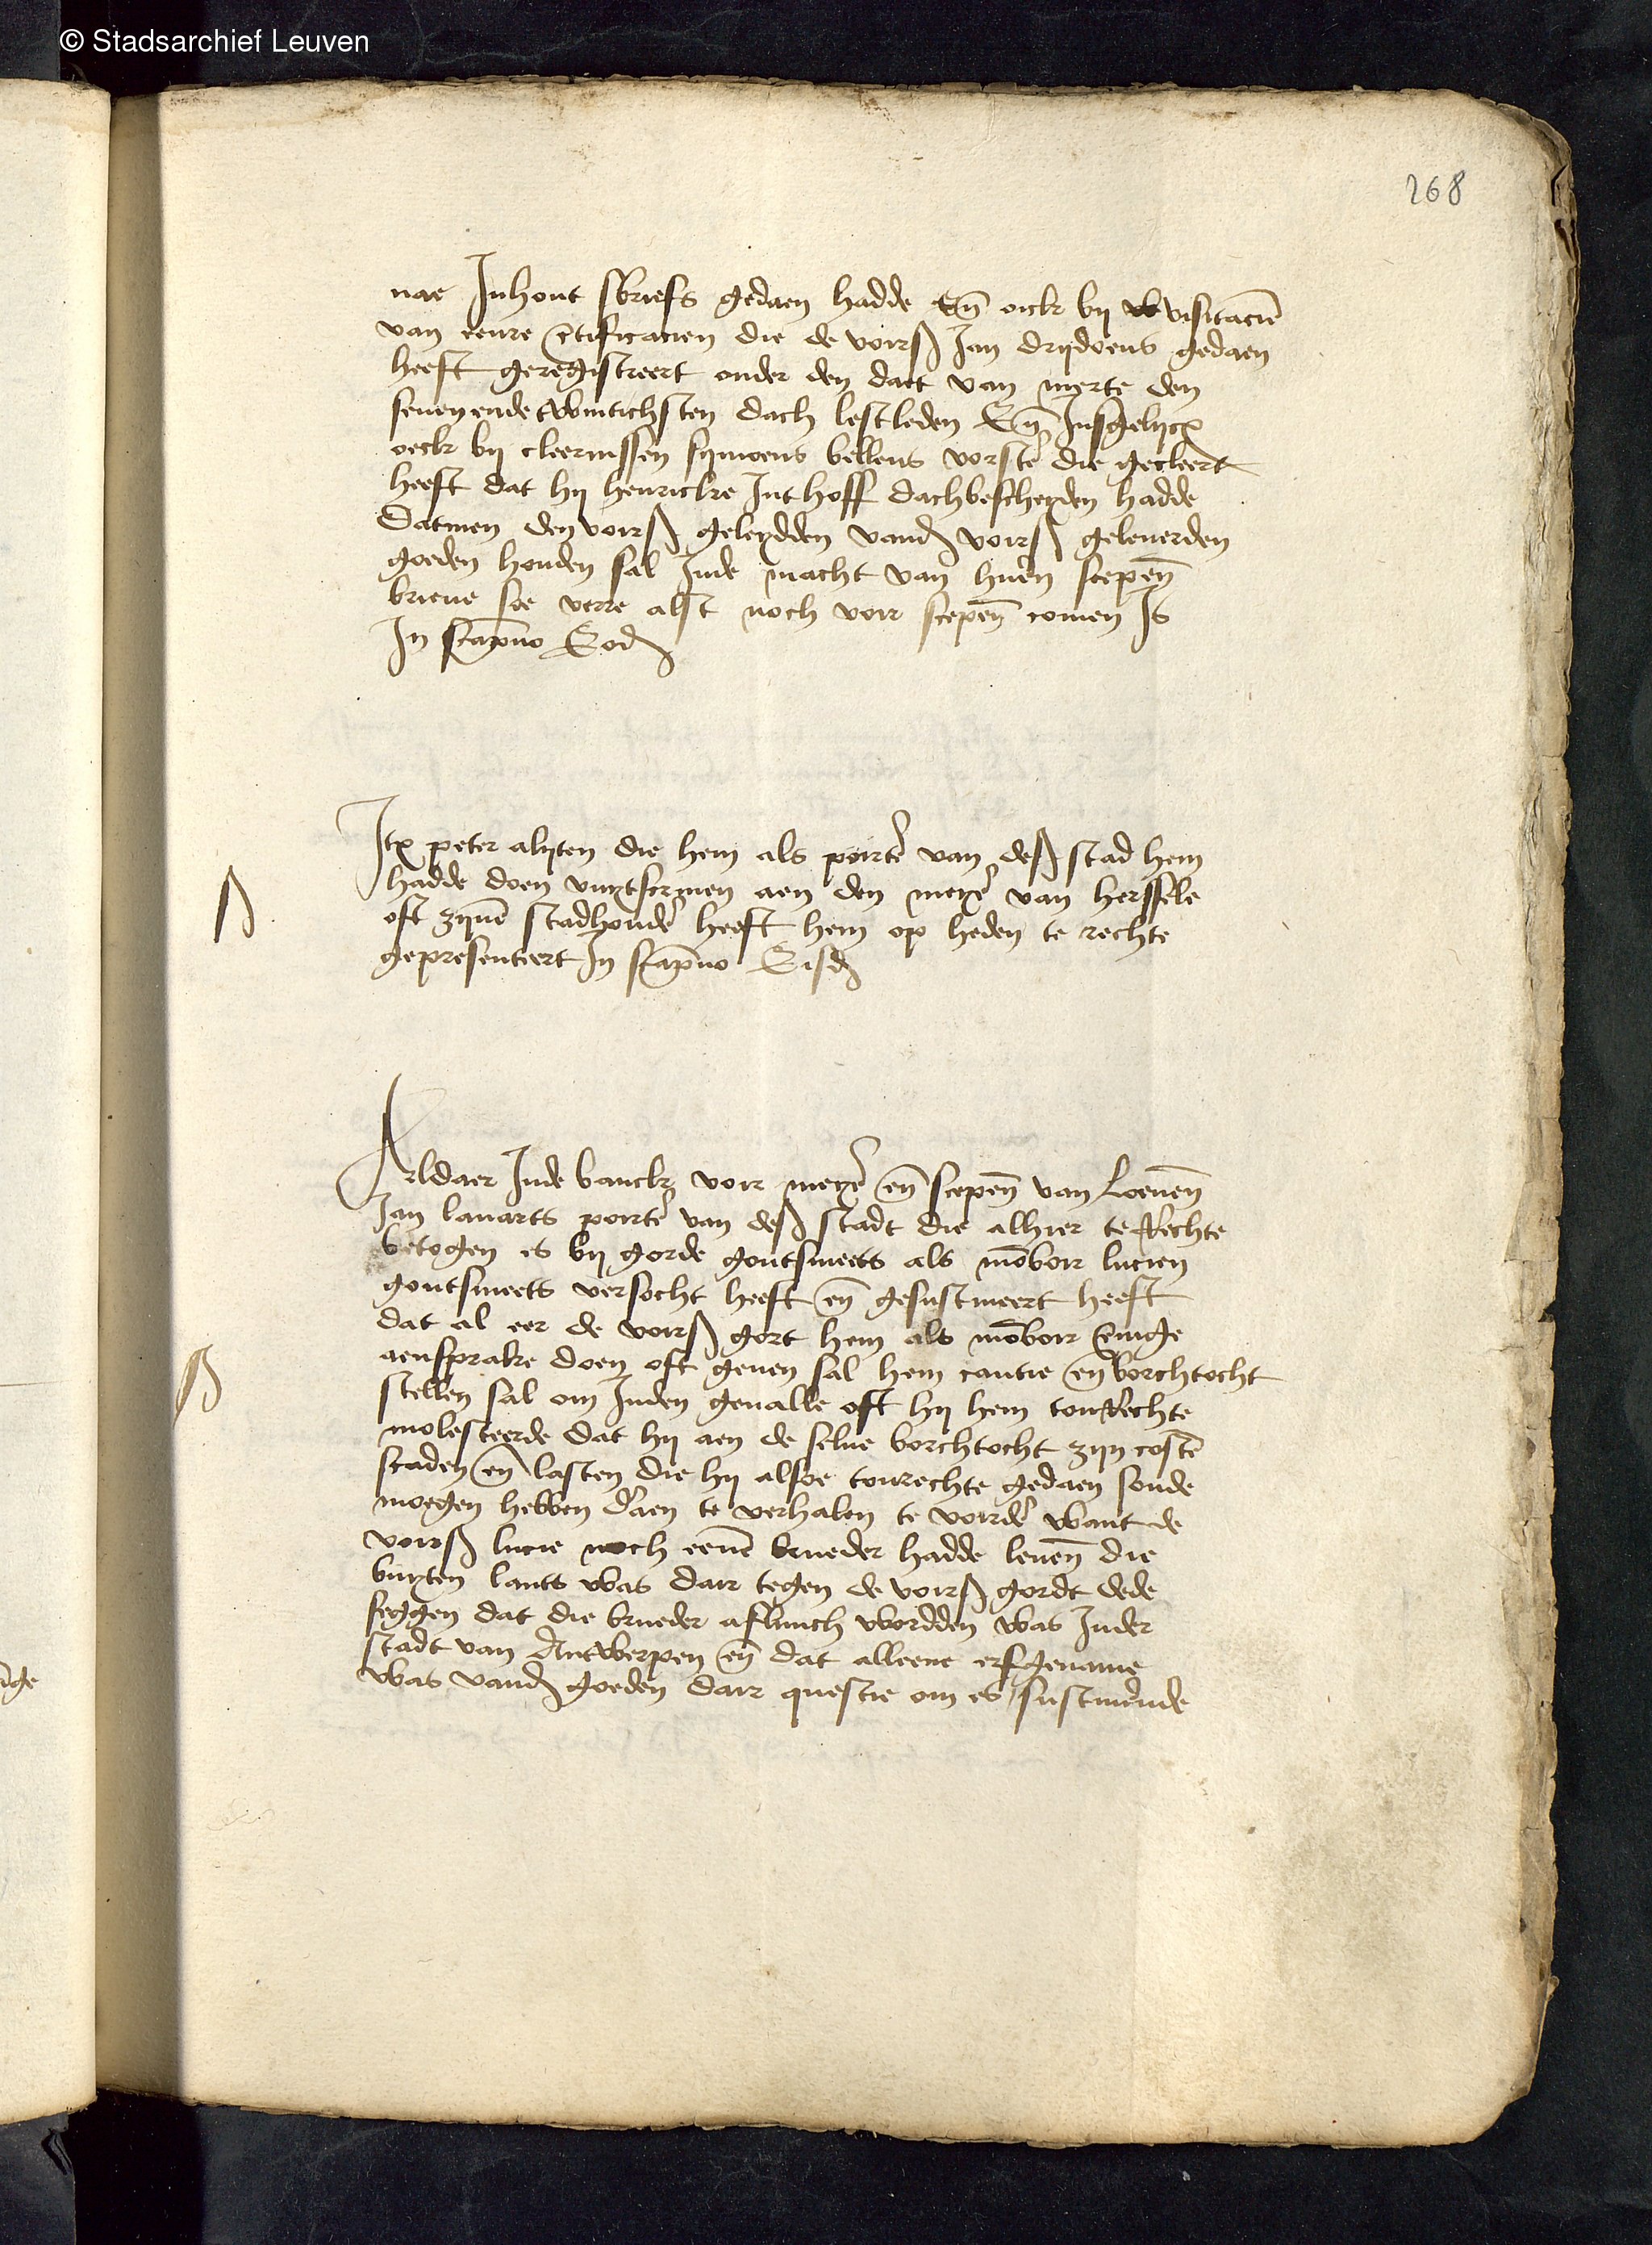 © Stadsarchief Leuven
268
nae Inhout sbriefs gedaen hadde En̄ oick bij visitacie̅
van eenre c̄tificacien die de voirs̃ Jan drijdoens gedaen
heeft geregistreert onder den dact van merte den
seuenendetwintichsten dach lestleden En̄ Insgelijcx
oeck bij cleernissen sijmoens bellens vorste̅ die gecleert
heeft dat hij henricke Int hoff dachbescheyden hadde
Datmen den voirs̃ geleydden vand̃ voirs̃ geleuerden
goeden houden sal Inde macht van hue̅n scepen̄
brieue soe verre alst noch voir scepen̄ comen Is
In scap̄no Eod̃
Itẽ peter alijten die hem als poirte̅ van des̃ stad hem
hadde doen vuytscriuen aen den meye̅ van herssele
oft zijne̅ stadhoude̅ heeft hem op heden te rechte
gepresenteert In scap̄no Eisd̃
Aldaer Inde banck voir meye̅ en̄ scepen̄ van Loeuen̄
Jan lauarts poirte̅ van des̃ stadt die alhier te Rechte
betogen es bij gorde goutsmeets als mo̅boir lucien
goutsmeets versocht heeft en̄ gesustineert heeft
dat al eer de voirs̃ gort hem als mo̅boir eenige
aensprake doen oft geuen sal hem cautie en̄ borchtocht
stellen sal om Inden geualle oft hij hem tonRechte
molesteerde dat hij aen de selue borchtocht zijn coste̅
scaden en̄ lasten die hij alsoe tonrechte gedaen soude
moegen hebben d̓aen te verhalen te voirde̅ want de
voirs̃ lucie noch eene̅ brueder hadde leuen̄ die
buyten lants was dair tegen de voirs̃ gordt dede
seggen dat die brueder afliuich wordden was Inder
stadt van Antwerpen en̄ dat alleene erfgename
was vand̃ goeden dair questie om es sustine̅nde